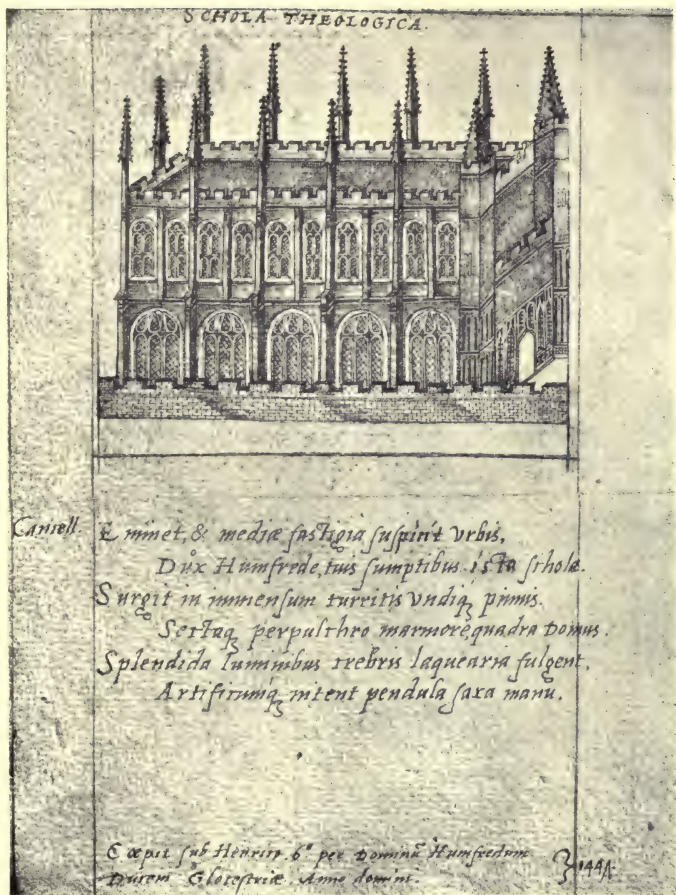 SCHOLA THEOLOGICA.
Cancell. Eminet, & mediæ fastigia suspicit urbis,
Dux Humfrede, tuis sumptibus ista schola.
Surgit in immensum turritis undiq pinnis.
Sectaq perpulchro marmore quadra Domus.
Splendida luminibus crebris laquearia fulgent,
Artificumq nitent pendula saxa manu.
Cœpit sub Henrico 6º per Dominū Humfredum
Ducem Glocestriæ. Anno domini.